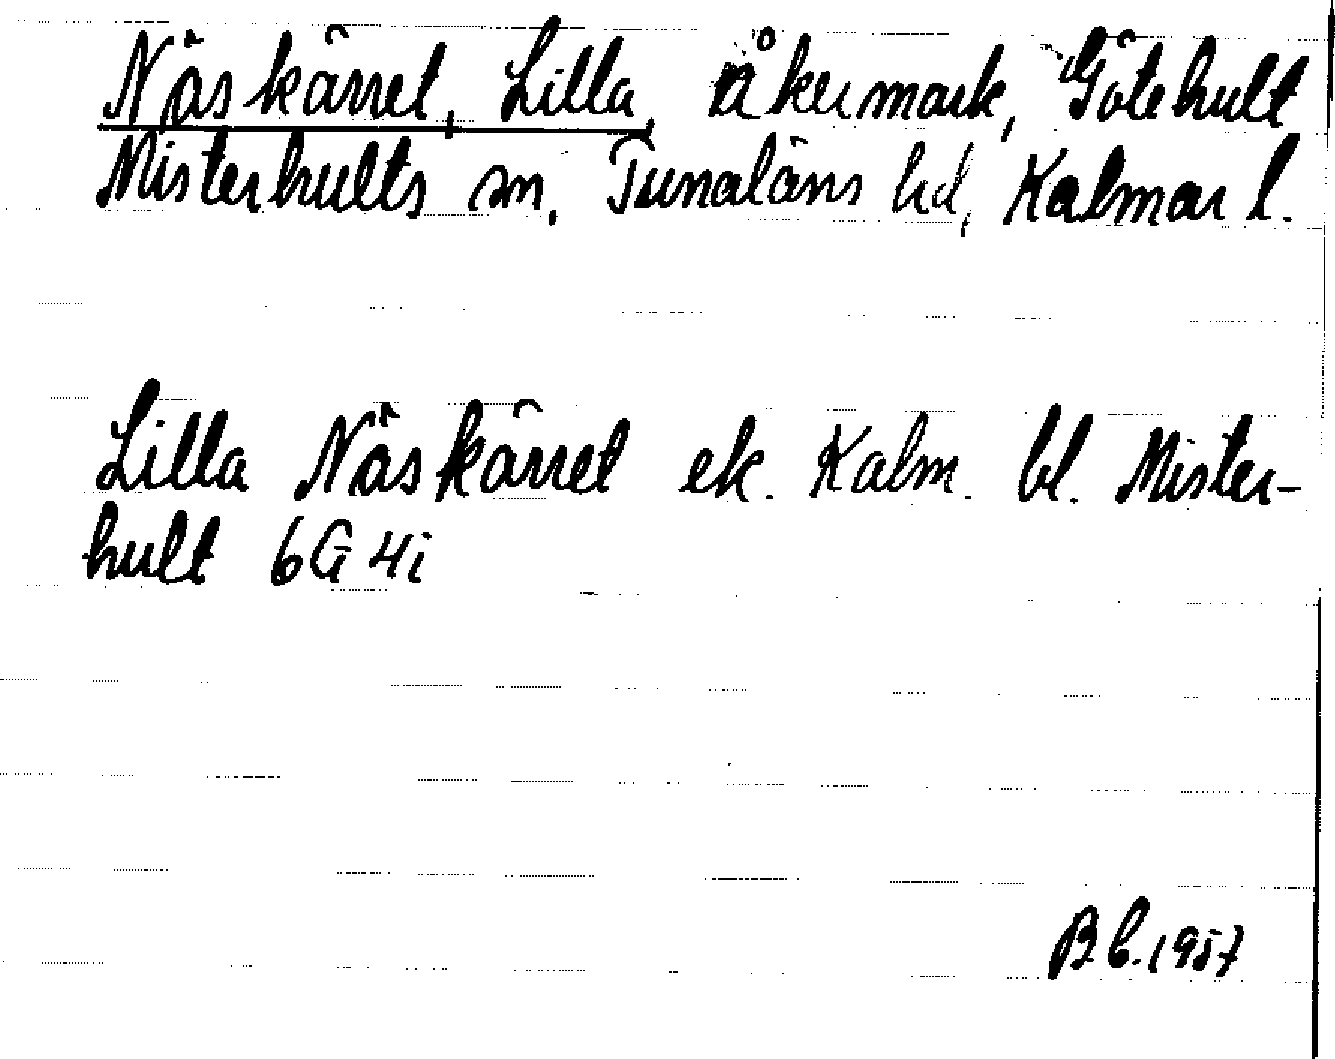 Näskärret, Lilla, åkermark, Götehult
Misterhults sn, Tunaläns hd, Kalmar l.
Lilla Näskärret ek. Kalm. bl. Mister-
hult 6G 4i
Bb. 1957